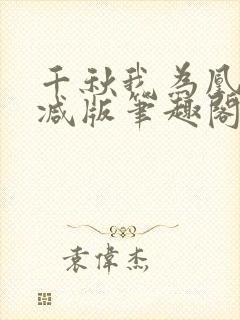 千秋我为凰
减版笔趣阁
袁偉杰